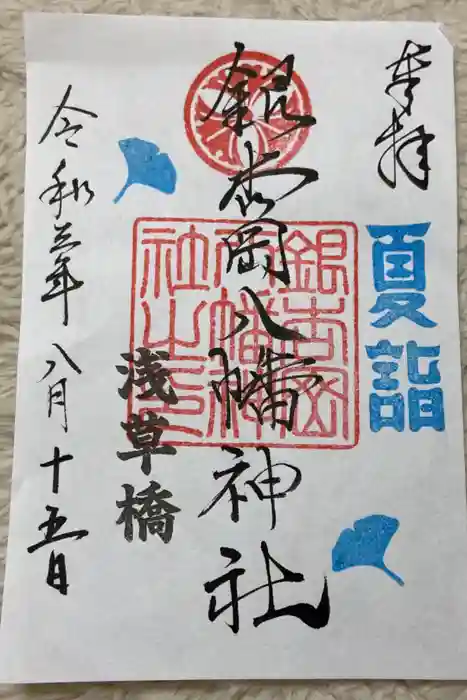 奉拝
夏詣
銀杏岡八幡神社
銀杏岡八幡神社之印
浅草橋
令和三年八月十五日